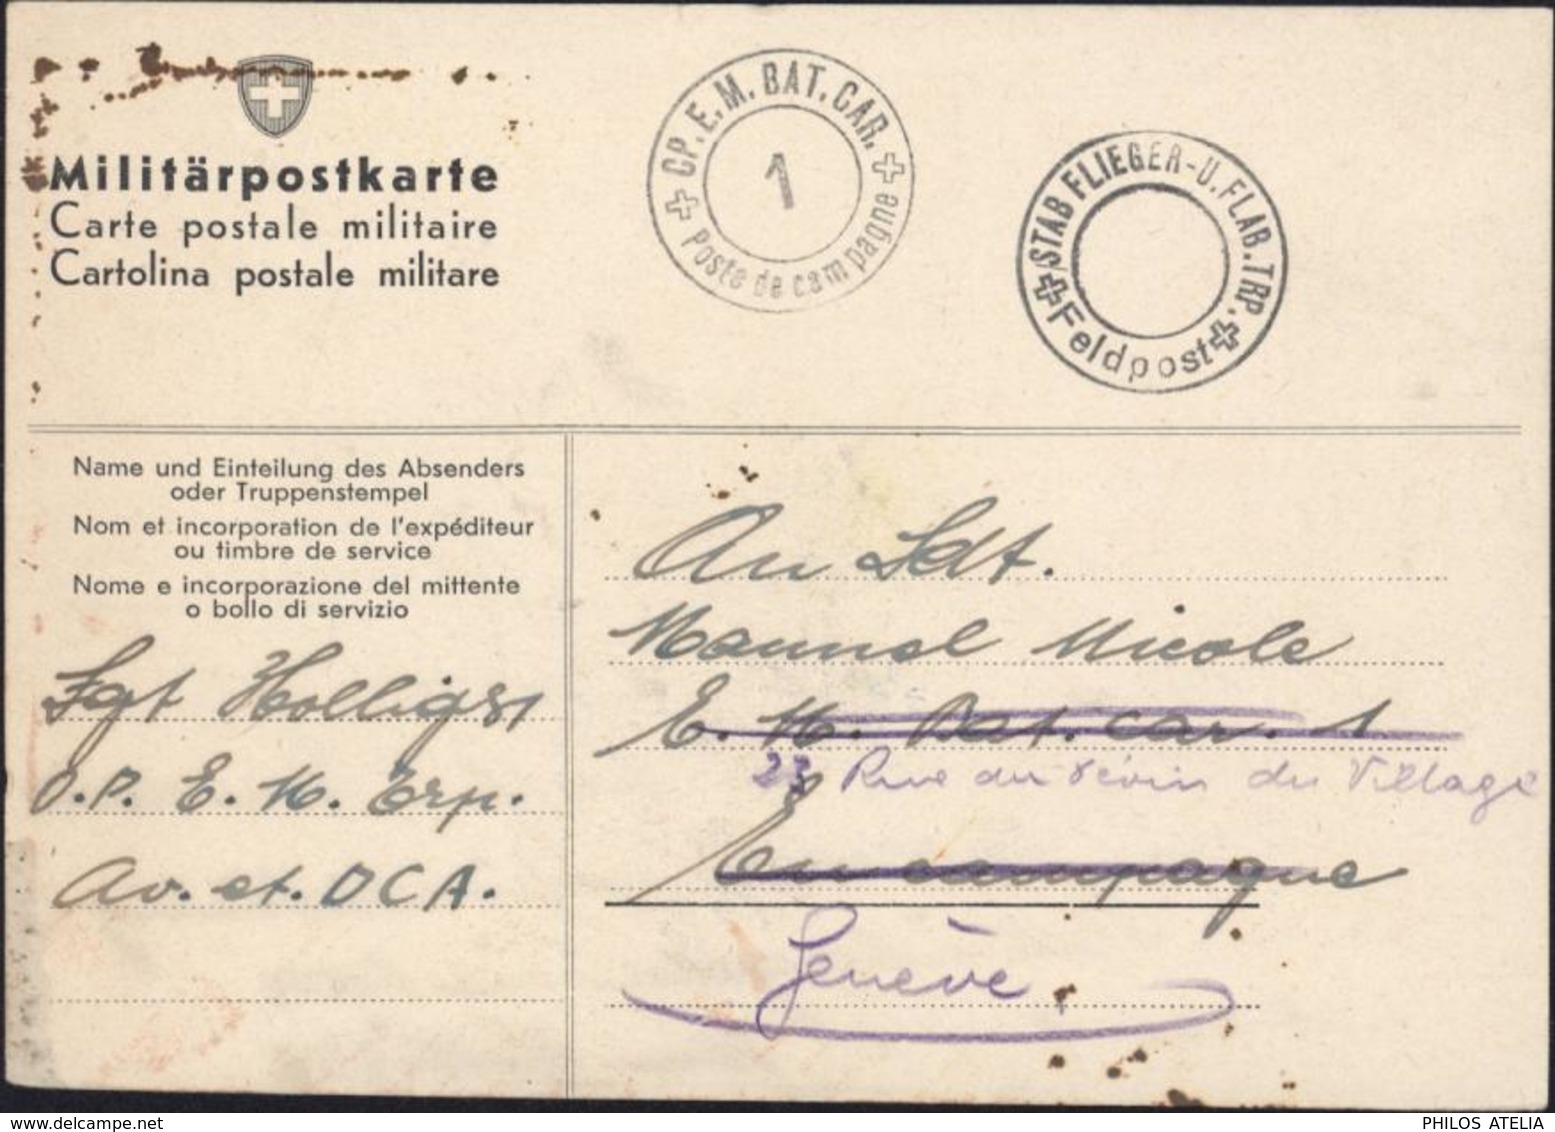 Militärpostkarte
Carte postale militaire
Cartolina postale militare
CP. E. M. BAT. CAR.
1
Poste de campagne
STAB FLIEGER- U. FLAB. TRP.
Feldpost
Name und Einteilung des Absenders
oder Truppenstempel
Nom et incorporation de l'expéditeur
ou timbre de service
Nome e incorporazione del mittente
o bollo di servizio
Sgt Holliger
E. M. Trp.
Av. et. DCA.
Au Sdt.
Manuel Nicole
E. M. Bat. Car. 1
23 Rue du du Village
En campagne
Genève
PHILOS ATELIA